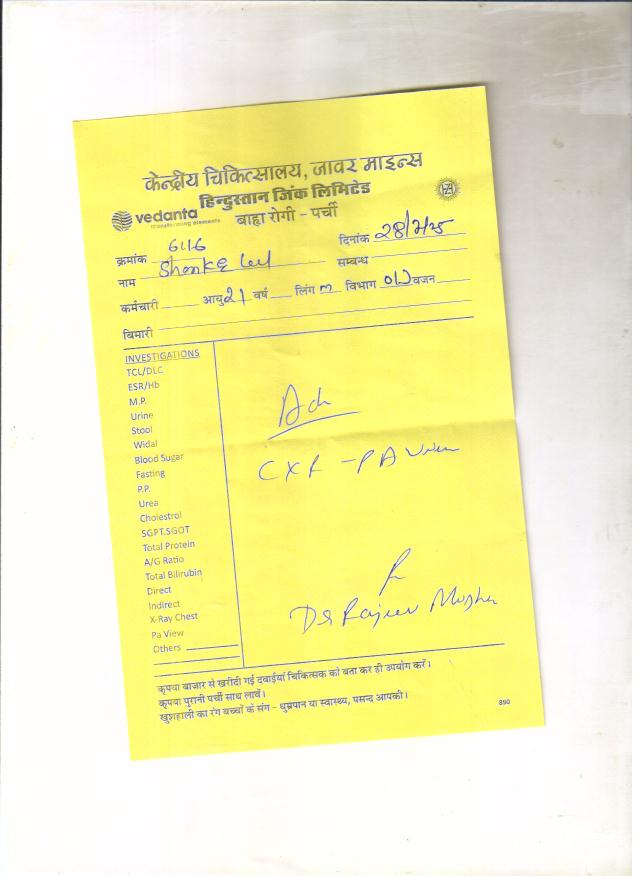 केन्द्रीय चिकित्सालय, जावर माइन्स
हिन्दुस्तान जिंक लिमिटेड
vedanta
transforming elements
बाह्य रोगी - पर्ची
क्रमांक 6416 दिनांक
नाम सम्बन्ध
कर्मचारी आयु 21 वर्ष लिंग m विभाग वजन
बिमारी
INVESTIGATIONS
TCL/DLC
ESR/Hb
M.P.
Urine
Stool
Widal
Blood Sugar
Fasting
P.P.
Urea
Cholestrol
SGPT.SGOT
Total Protein
A/G Ratio
Total Bilirubin
Direct
Indirect
X-Ray Chest
Pa View
Others
Adv
CXR - PA View
Dr Rajeev
कृपया बाजार से खरीदी गई दवाईयां चिकित्सक को बता कर ही उपयोग करें।
कृपया पुरानी पर्ची साथ लावें।
खुशहाली का रंग बच्चों के संग - धुम्रपान या स्वास्थ्य, पसन्द आपकी।
890